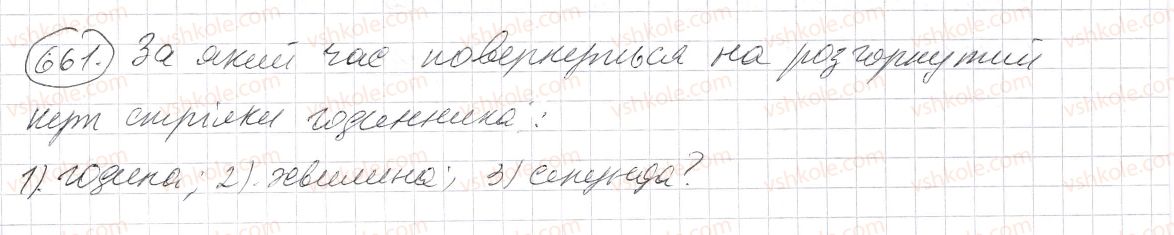 661. За який час повернеться на розгорнутий
кут стрілки годинника:
1). година; 2). хвилина; 3) секунда?